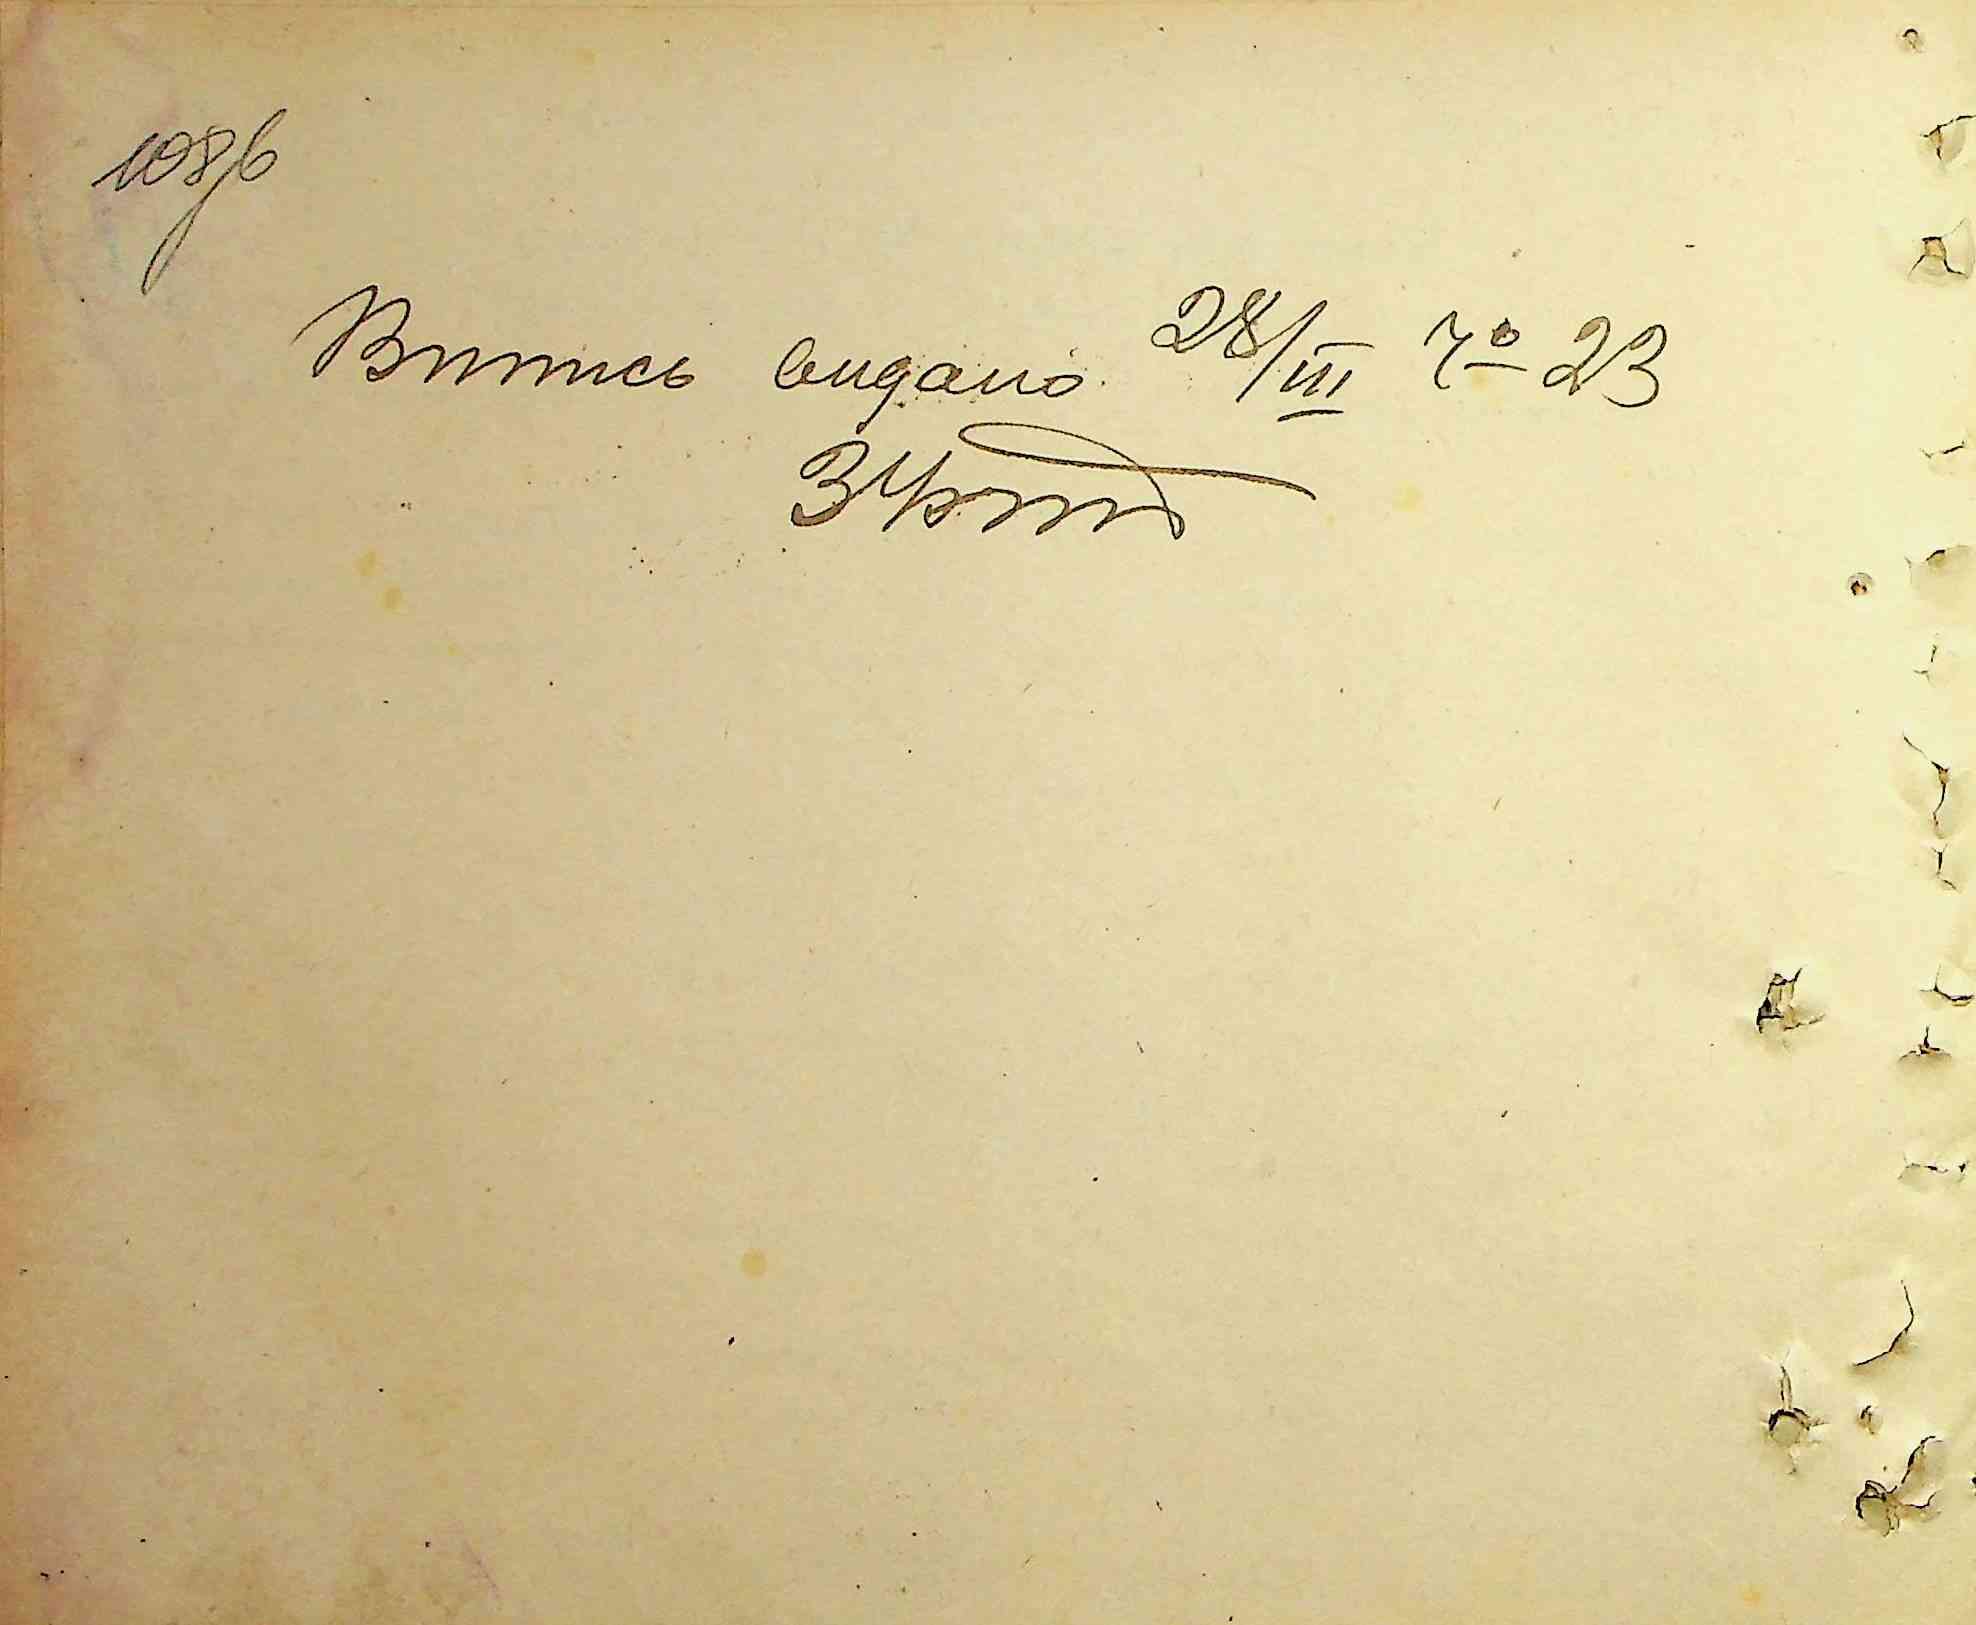 108б
Витись видано 28/III № 23